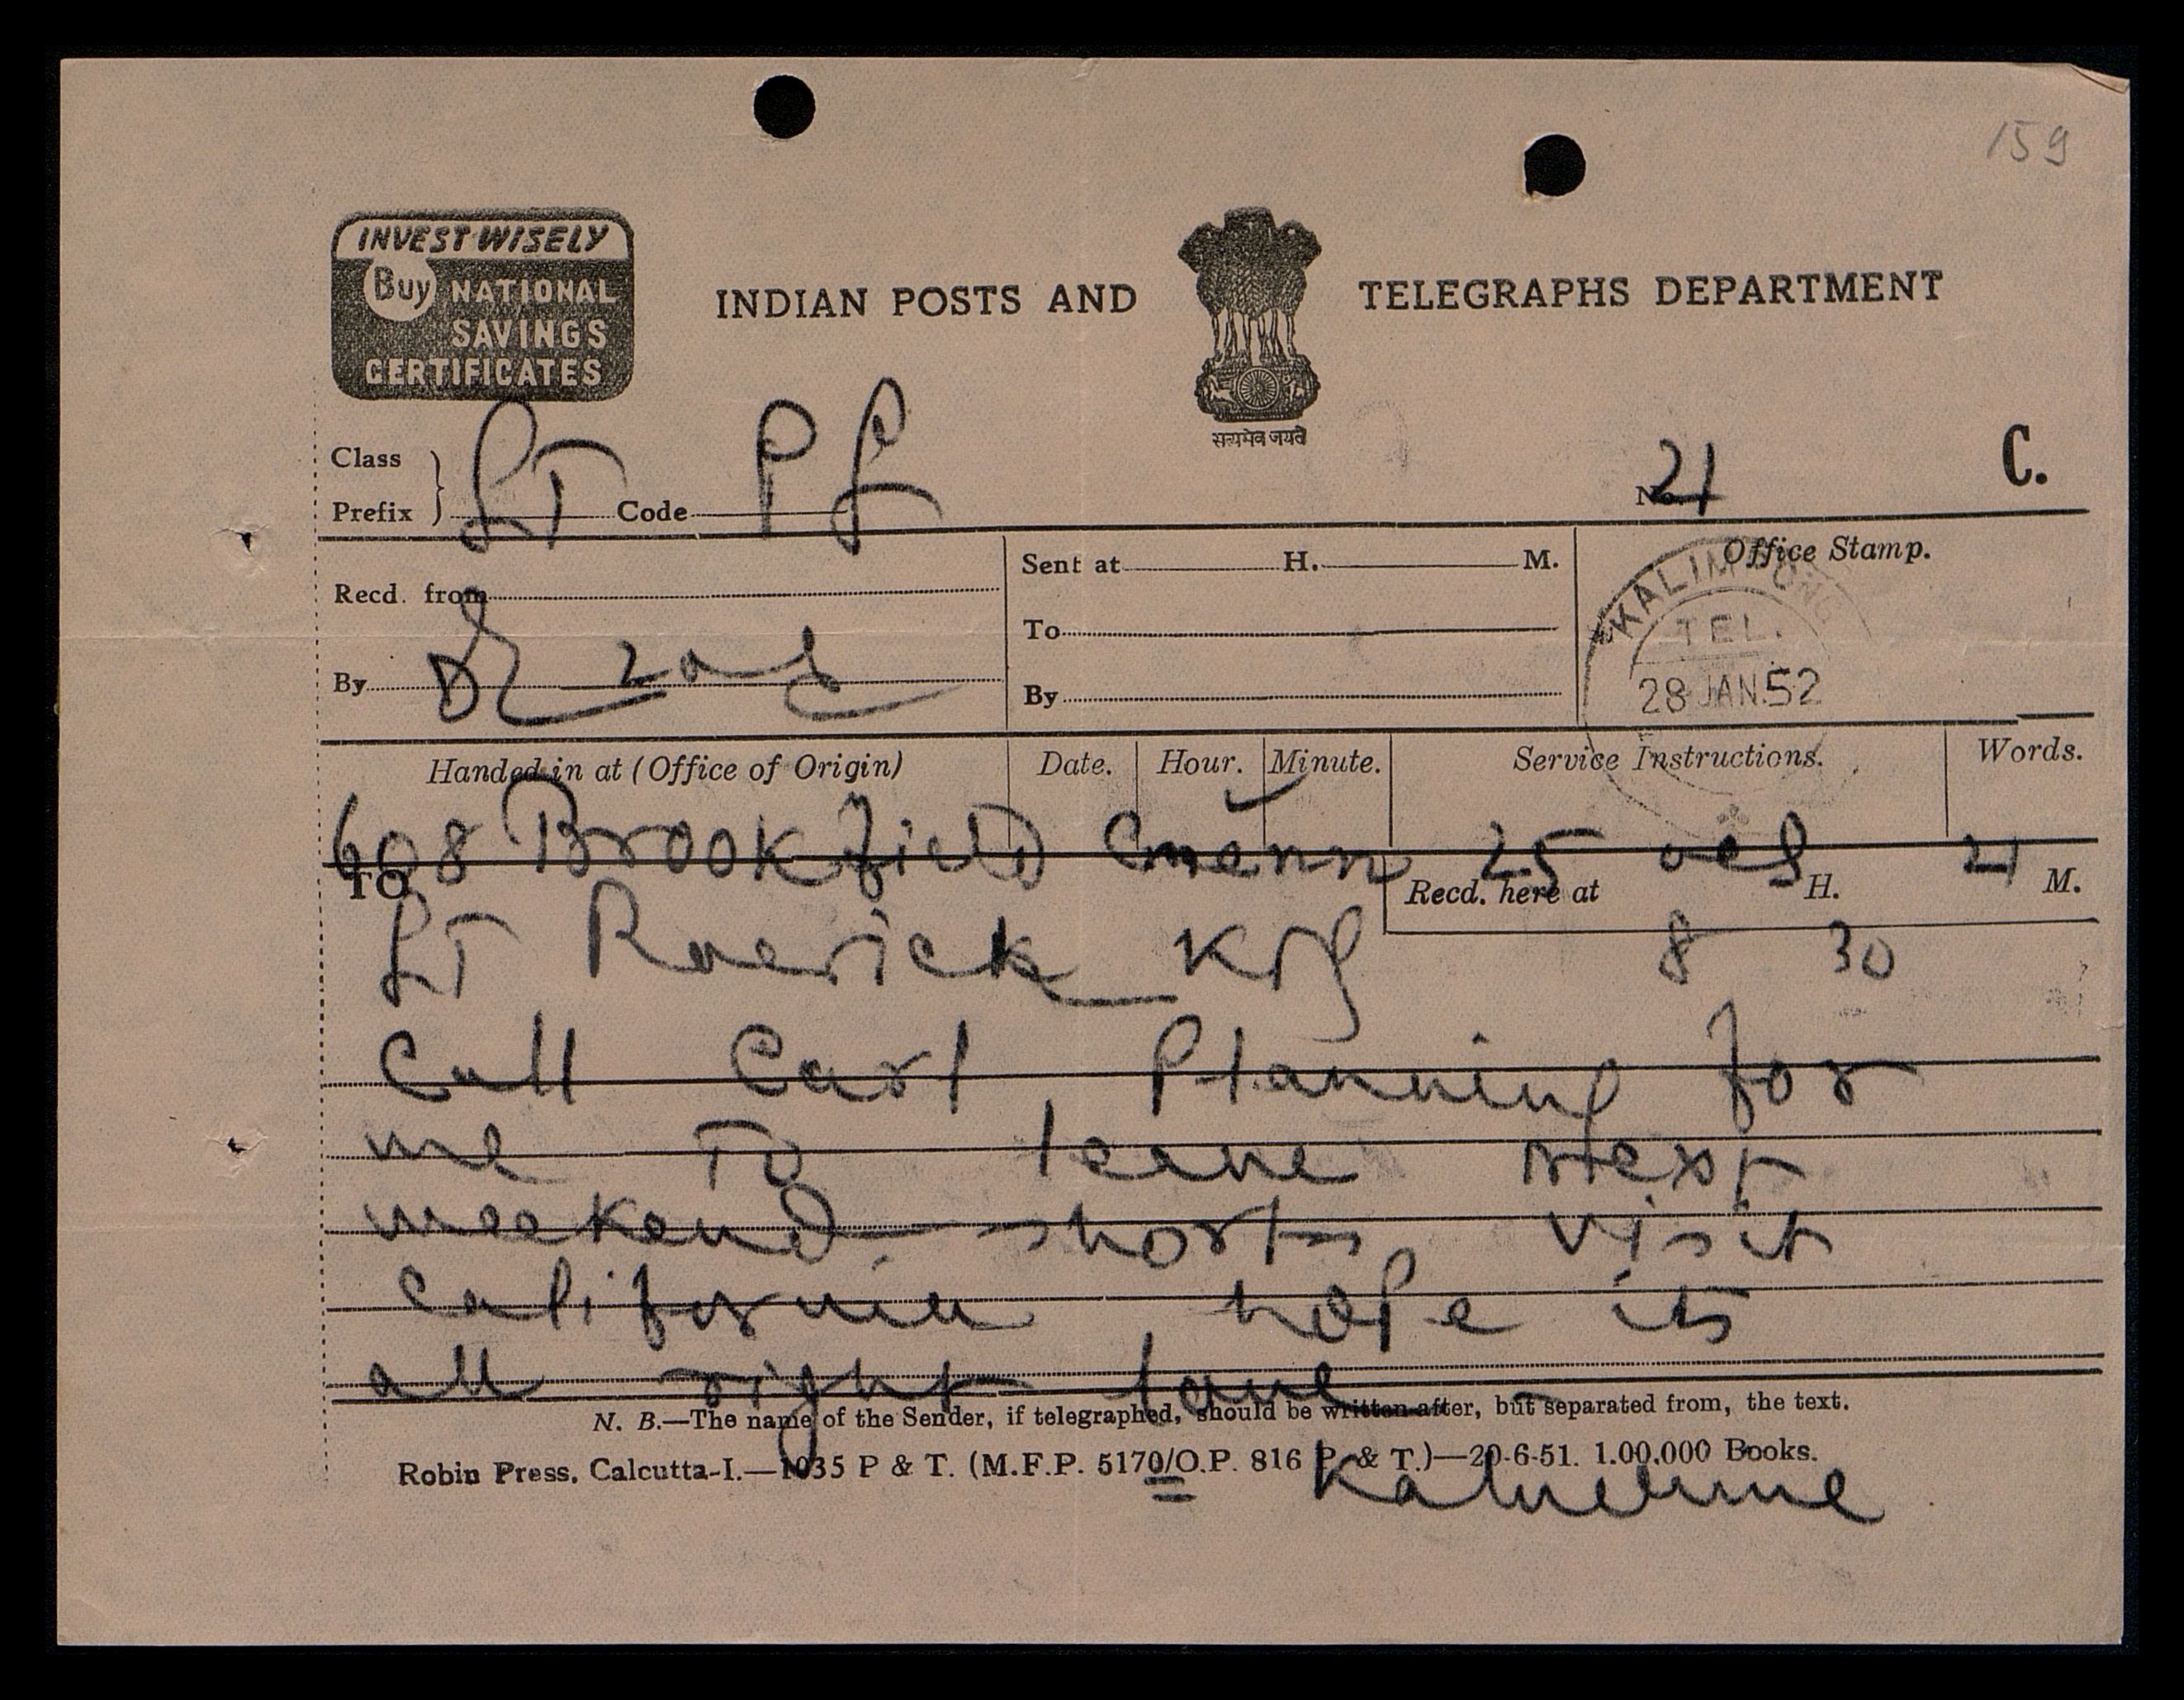 159
INVEST WISELY
Buy NATIONAL
SAVINGS
CERTIFICATES
INDIAN POSTS AND TELEGRAPHS DEPARTMENT
सत्यमेव जयते
Class
Prefix } LT Code
No. 21 C.
Recd. from
By
Sent at H. M.
To
By
Office Stamp.
KALIMPONG
TEL.
28 JAN.52
Handed in at (Office of Origin) Date. Hour. Minute. Service Instructions. Words.
608 Brookfield Conn 25 21
TO
Recd. here at H. M.
LT Roerick KPG 8 30
Call Carl, Planning for
me To leave next
weekend. short visit
California, hope its
all right love
N. B.—The name of the Sender, if telegraphed, should be written after, but separated from, the text.
Robin Press, Calcutta-I.—1035 P & T. (M.F.P. 5170/O.P. 816 P. & T.)—20-6-51. 1.00.000 Books.
= Katherine